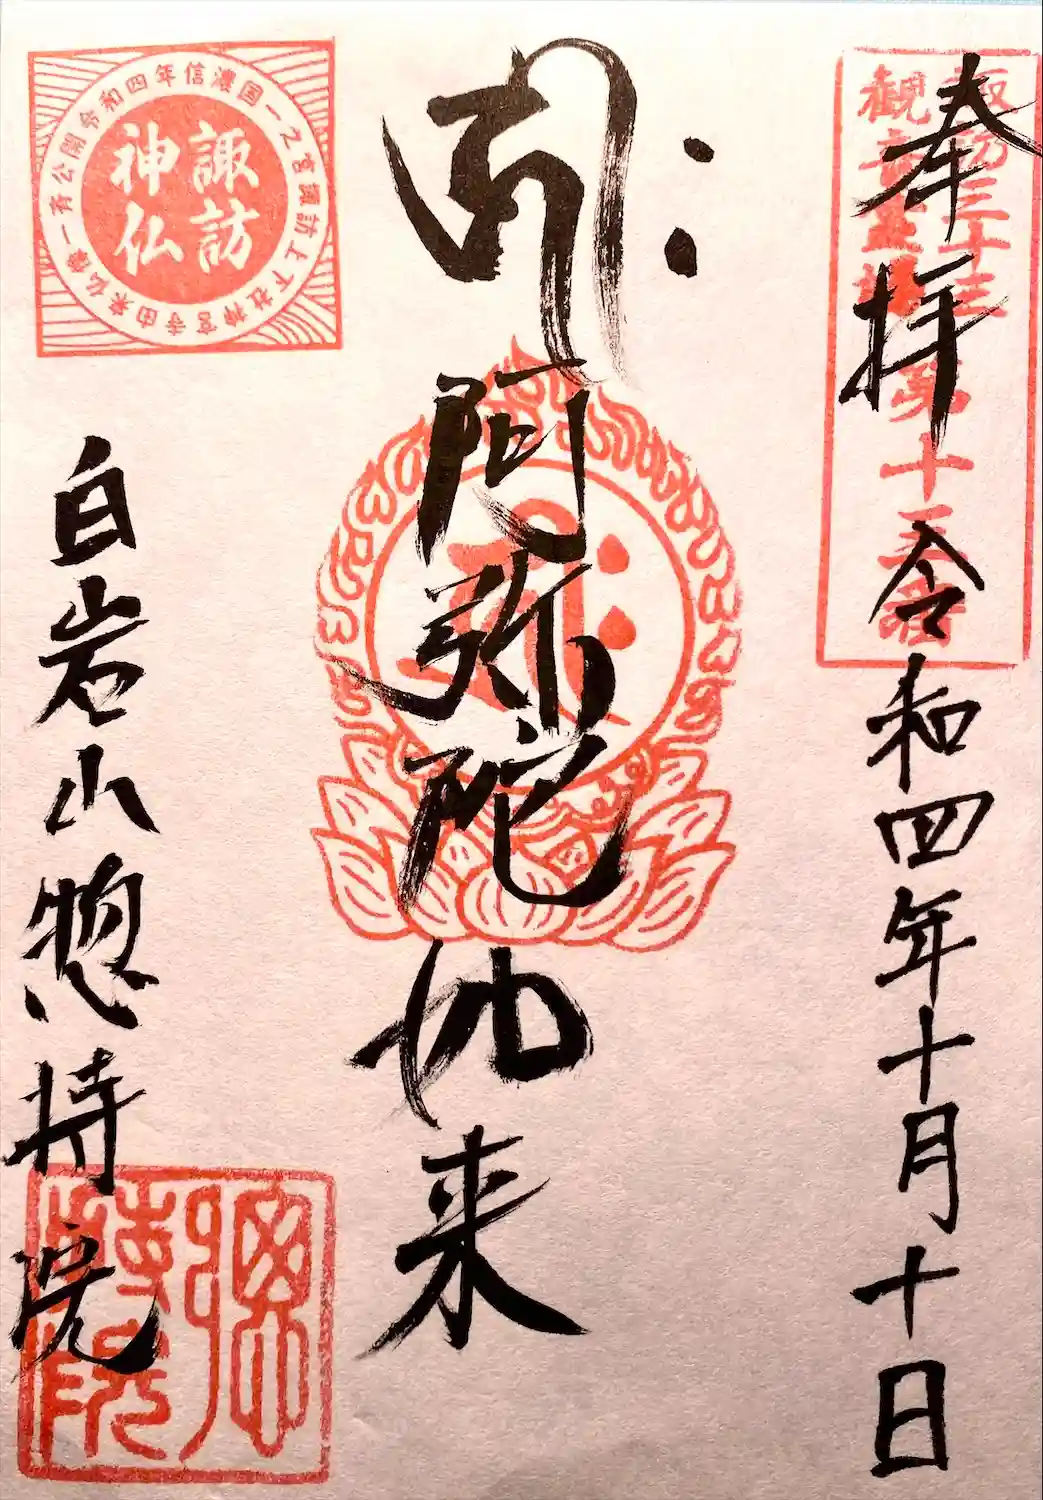 奉拝 令和四年十月十日
諏訪三十三
観音霊場
第十三番
阿弥陀如来
白岩山惣持院
諏訪
神仏
令和四年信濃国一之宮諏訪上下社神宮寺由来仏像一斉公開